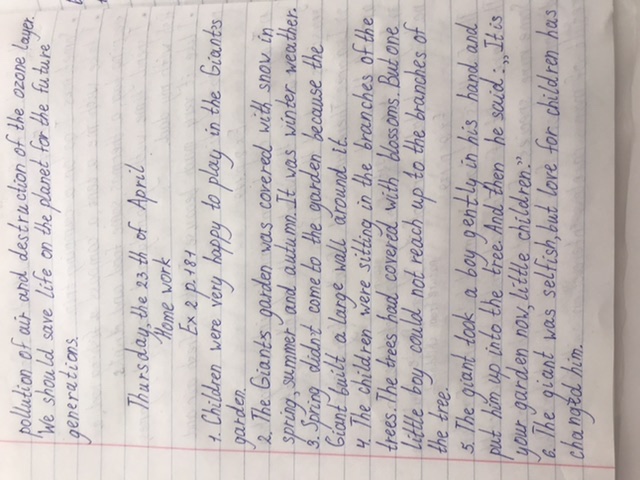 pollution of air and destruction of the ozone layer.
We should save life on the planet for the future
generations.
Thursday, the 23 th of April
Home work
Ex 2 p.181
1. Children were very happy to play in the Giant's
garden.
2. The Giant's garden was covered with snow in
spring, summer and autumn. It was winter weather.
3. Spring didn't come to the garden because the
Giant built a large wall around it.
4. The children were sitting in the branches of the
trees. The trees had covered with blossoms. But one
little boy could not reach up to the branches of
the tree.
5. The giant took a boy gently in his hand and
put him up into the tree. And then he said: „It is
your garden now, little children."
6. The giant was selfish, but love for children has
changed him.